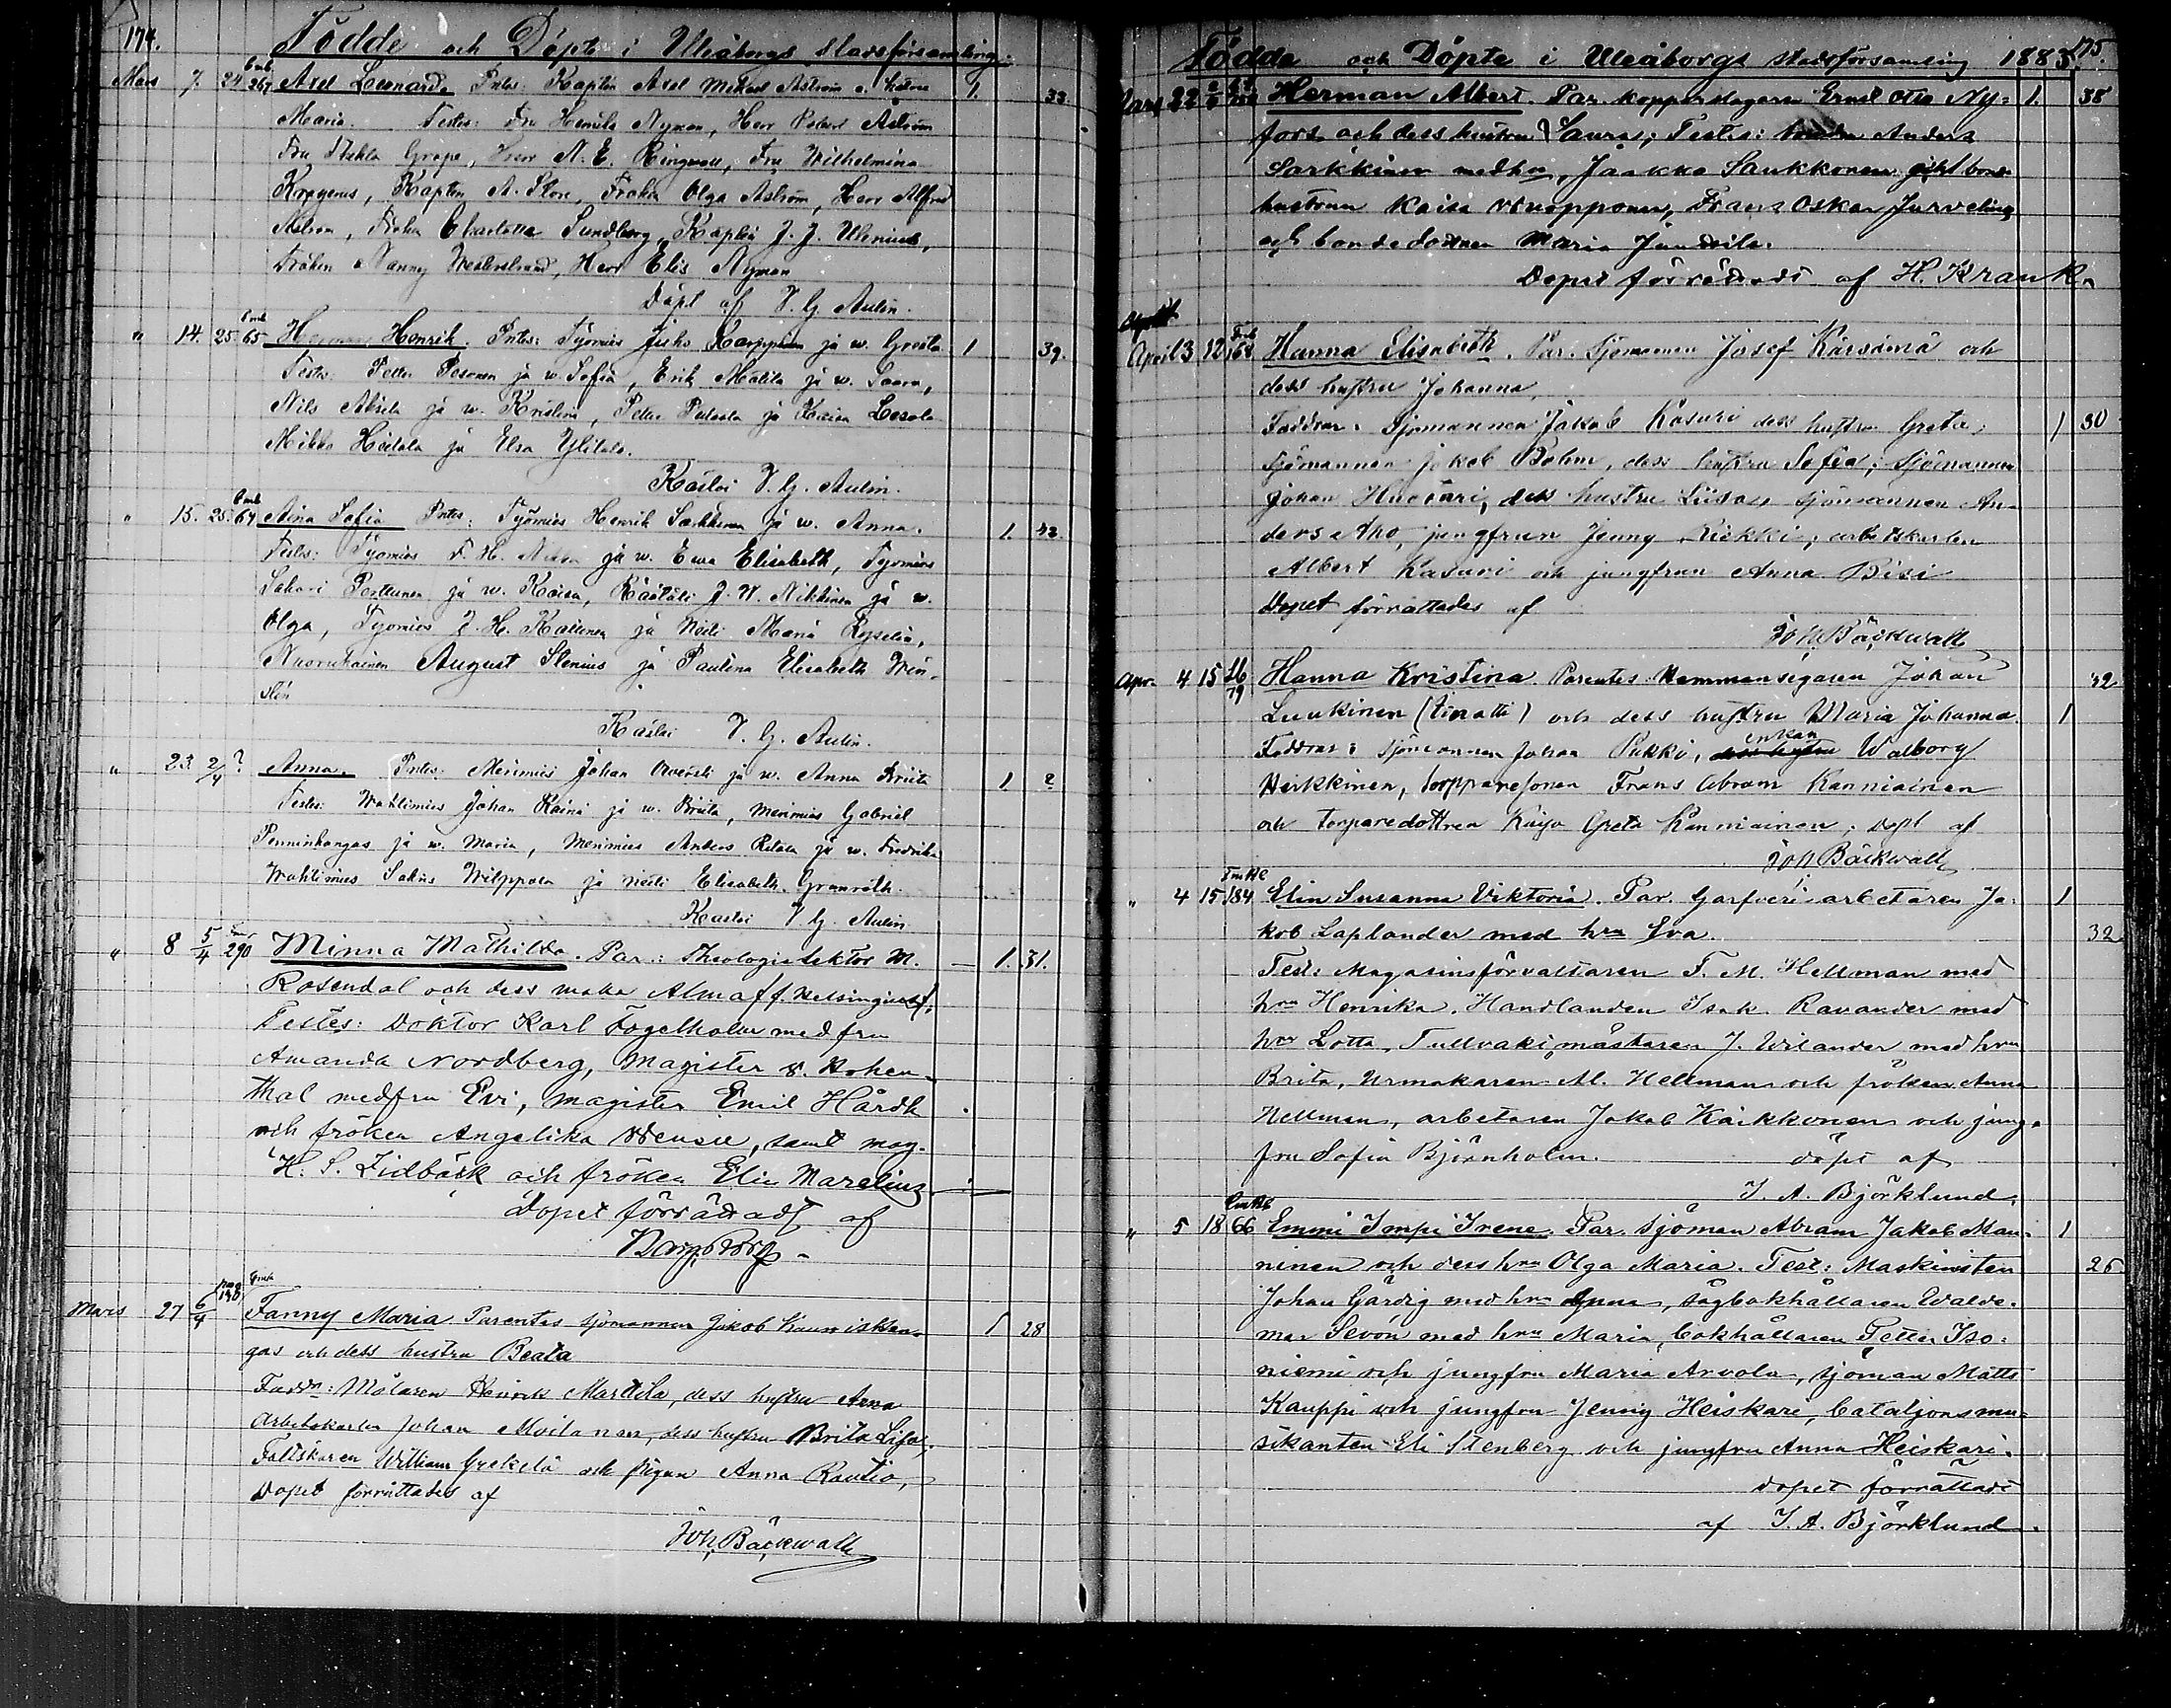 174.
Födde och Döpte i Uleåborgs Stadsförsamling
Mars 7. 24 267 Axel Leonard. Pntes: Kapten Axel Mikael Åström o. 1. 33
Maria. Testes: Fru Nyman, Herr Robert Åström
Fru Thekla Grape, Herr A. E. Ringwall, Fru Wilhelmina
Krogerus, Kapten A. Store, Fröken Olga Åström, Herr Alfred
Fröken Charlotta Sundberg, Kapten J. J. Ulenius,
Fröken Nanny Westerstrand, Herr Elis Nyman
Döpt af V. G. Aulin.
" 14. 25. 65 Herman Henrik. Pntes: Työmies Juho Karppinen ja w. Greeta 1 39.
Testes: Petter Pesonen ja w Sofia, Erik Matila ja w. Saara,
Nils ja w. Kristina, Petter ja Kaisa
Mikko Heitala ja Elsa Ylitalo.
Kastoi V. G. Aulin.
" 15. 25. 64 Aina Sofia Pntes: Työmies Henrik Sarkkinen ja w. Anna. 1. 43.
Testes: Työmies F. H. ja w. Ewa Elisabeth, Työmies
Sakari Perttunen ja w. Kaisa, Räätäli J. W. Nikkinen ja w.
Olga, Työmies J. H. Kallunen ja Neiti Maria
Nuorukainen August Stenius ja Paulina Elisabeth Win-
stén
Kastoi V. G. Aulin.
" 23. 2/4 ? Anna. Pntes: Merimies Johan ja w. Anna Briita 1 ?
Testes: Wahtimies Johan Raina ja w. Briita, merimies Gabriel
Penninkangas ja w. Maria, Merimies Anders Retala ja w. Fredrika
Wahtimies Sakris Wilppola ja neiti Elisabeth Granroth.
Kastoi V. G. Aulin
" 8 5/4 290 Minna Mathilda. Par.: Theologielektor M. 1. 31.
Rosendal och dess maka Alma f. Helsingius;
Testes: Doktor Karl Fogelholm med fru
Amanda Nordberg, Magister V. Hohen-
thal med fru Evi, magister Emil Hårdh
och fröken Angelika Wenell, samt mag.
K. S. Lidbäck och fröken Elin Marelius
Dopet förrättadt af
Mars 27 6/4 Fanny Maria Parentes sjömannen Jakob Kauniskan- 1 28
gas och dess hustru Beata
Faddr: Målaren Henrik Marttila, dess hustru Anna
Arbetskarlen Johan Moilanen, dess hustru Brita Lisa,
Fältskären William och pigan Anna Rautio,
Dopet förrättades af
Joh. Bäckwall
175.
Födde och Döpte i Uleåborgs stadsförsamling 1885.
Mars 22 Herman Albert. Par. kopparslagaren Ernst Otto Ny- 1. 38
fors och dess hustru Laura; Testes: Anders
Sarkkinen med hu, Jaakko Saukkonen
hustrun Kaisa Nuopponen, Frans Oskar Jurvelin
och bondedottren Maria Jundila.
Dopet förrättadt af H. Krank.
April 3 12 164 Hanna Elisabeth. Par. Sjömannen Josef Kärsämä och
dess hustru Johanna,
Faddrar: Sjömannen Jakob Kasuri dess hustru Greta, 1 30
sjömannen Jakob Bohm, dess hustru Sofia; Sjömannen
Johan Huotari, dess hustru Liisa, sjömannen An-
ders Aho, jungfrun Jenny Riekki, arbetskarlen
Albert Kasuri och jungfrun Anna Pisi
Dopet förrättades af
Joh. Bäckwall
Apr. 4 15 16/79 Hanna Kristina. Parentes Hemmansegaren Johan 32
Luukinen (Linatti) och dess hustru Maria Johanna. 1
Faddrar: Sjömannen Johan Pukki, enkan Walborg
Heikkinen, torpparesonen Frans Abram Kanniainen
och torparedottren Kajsa Greta Kanniainen; Döpt af
Joh Bäckwall
" 4 15 184 Elin Susanna Viktoria. Par. Garfveriarbetaren Ja- 1
kob Laplander med hru Eva. 32
Test: Magasinsförvaltaren F. M. Hellman med
hru Henrika, Handlanden Isak Ravander med
hru Lotta, Tullvaktmästaren J. Wilander med hru
Brita, Urmakaren Al. Hellman och fröken Anna
Hellman, arbetaren Jakob Kärkkonen och jung-
fru Sofia Björnholm. döpt af
J. A. Björklund.
" 5 18 66 Emmi Impi Irene. Par. Sjöman Abram Jakob Man- 1
ninen och dess hru Olga Maria. Test: Maskinisten 26
Johan Gärdig med hru Anna, sågbokhållaren Walde-
mar Sevón med hru Maria, bokhållaren Petter Iso-
niemi och jungfru Maria Arvola, sjöman Matts
Kauppi och jungfru Jenny Heiskari, bataljonsmu-
sikanten Eli Stenberg och jungfru Anna Heiskari.
dopet förrättadt
af J. A. Björklund.